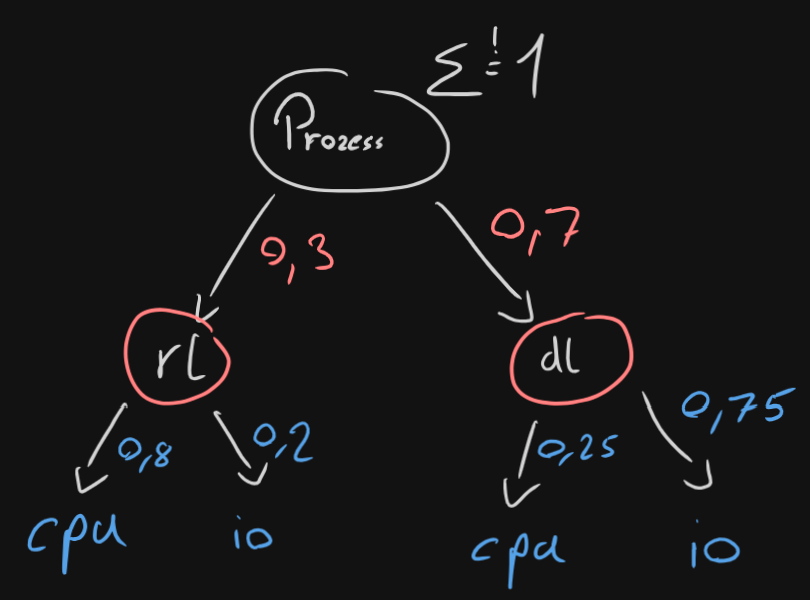 Σ != 1
Prozess
0,3
0,7
rl
dl
0,8
0,2
0,25
0,75
cpu
io
cpu
io